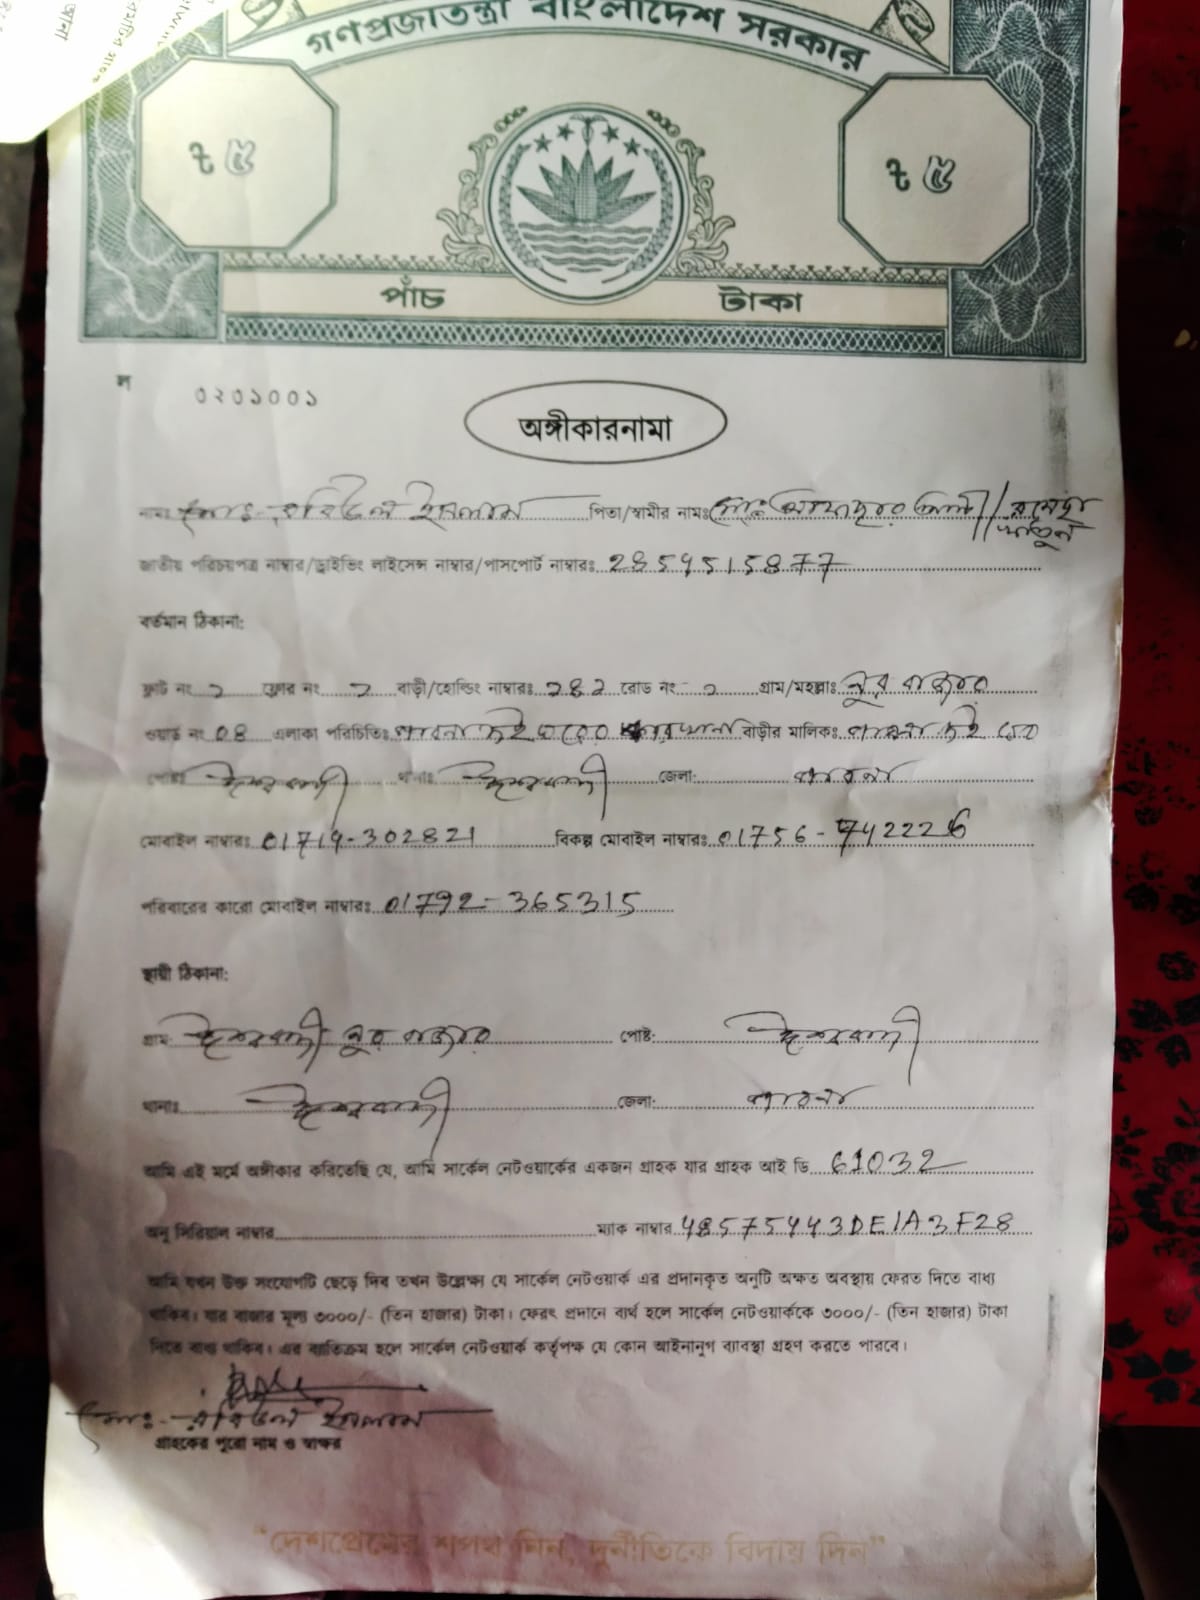 গণপ্রজাতন্ত্রী বাংলাদেশ সরকার
৳ ৫ ৳ ৫
পাঁচ টাকা
ল ৩২০১০০১
অঙ্গীকারনামা
নামঃ মোঃ- রবিউল ইসলাম পিতা/স্বামীর নামঃ মোঃ আলী // খাতুন
জাতীয় পরিচয়পত্র নাম্বার/ড্রাইভিং লাইসেন্স নাম্বার/পাসপোর্ট নাম্বারঃ 2859515877
বর্তমান ঠিকানা:
ফ্লাট নং ফ্লোর নং বাড়ী/হোল্ডিং নাম্বারঃ রোড নং গ্রাম/মহল্লাঃ নুর বাজার
ওয়ার্ড নং 08 এলাকা পরিচিতিঃ বাড়ীর মালিকঃ
পোষ্টঃ ঈশ্বরদী থানাঃ ঈশ্বরদী জেলা: পাবনা
মোবাইল নাম্বারঃ 01719-302821 বিকল্প মোবাইল নাম্বারঃ 01756-742226
পরিবারের কারো মোবাইল নাম্বারঃ 01792-365315
স্থায়ী ঠিকানা:
গ্রাম: ঈশ্বরদী নুর বাজার পোষ্ট: ঈশ্বরদী
থানাঃ ঈশ্বরদী জেলা: পাবনা
আমি এই মর্মে অঙ্গীকার করিতেছি যে, আমি সার্কেল নেটওয়ার্কের একজন গ্রাহক যার গ্রাহক আই ডি 61032
অনু সিরিয়াল নাম্বার ম্যাক নাম্বার 48575443DE1A3F28
আমি যখন উক্ত সংযোগটি ছেড়ে দিব তখন উল্লেক্ষা যে সার্কেল নেটওয়ার্ক এর প্রদানকৃত অনুটি অক্ষত অবস্থায় ফেরত দিতে বাধ্য
থাকিব। যার বাজার মূল্য ৩০০০/- (তিন হাজার) টাকা। ফেরৎ প্রদানে ব্যর্থ হলে সার্কেল নেটওয়ার্ককে ৩০০০/- (তিন হাজার) টাকা
দিতে বাধ্য থাকিব। এর ব্যতিক্রম হলে সার্কেল নেটওয়ার্ক কর্তৃপক্ষ যে কোন আইনানুগ ব্যাবস্থা গ্রহণ করতে পারবে।
মোঃ- রবিউল ইসলাম
গ্রাহকের পুরো নাম ও স্বাক্ষর
“দেশপ্রেমের শপথ নিন, দুর্নীতিকে বিদায় দিন”